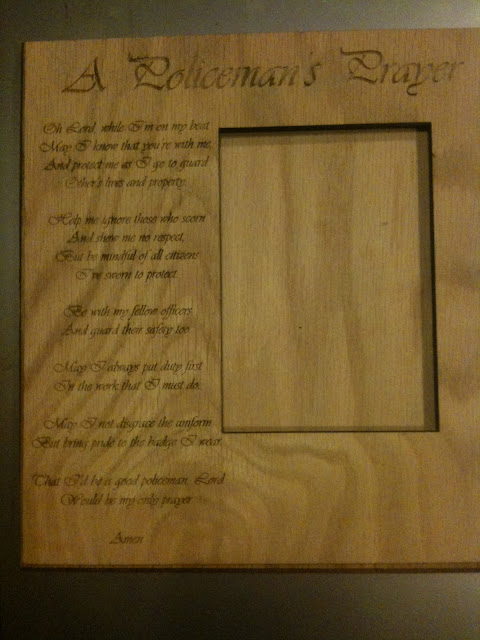 A Policeman's Prayer
Oh Lord, while I'm on my beat
May I know that you're with me,
And protect me as I go to guard
Other's lives and property.
Help me ignore those who scorn
And show me no respect,
But be mindful of all citizens
I've sworn to protect.
Be with my fellow officers
And guard their safety too.
May I always put duty first
In the work that I must do.
May I not disgrace the uniform
But bring pride to the badge I wear,
That I'd be a good policeman, Lord
Would be my only prayer
Amen